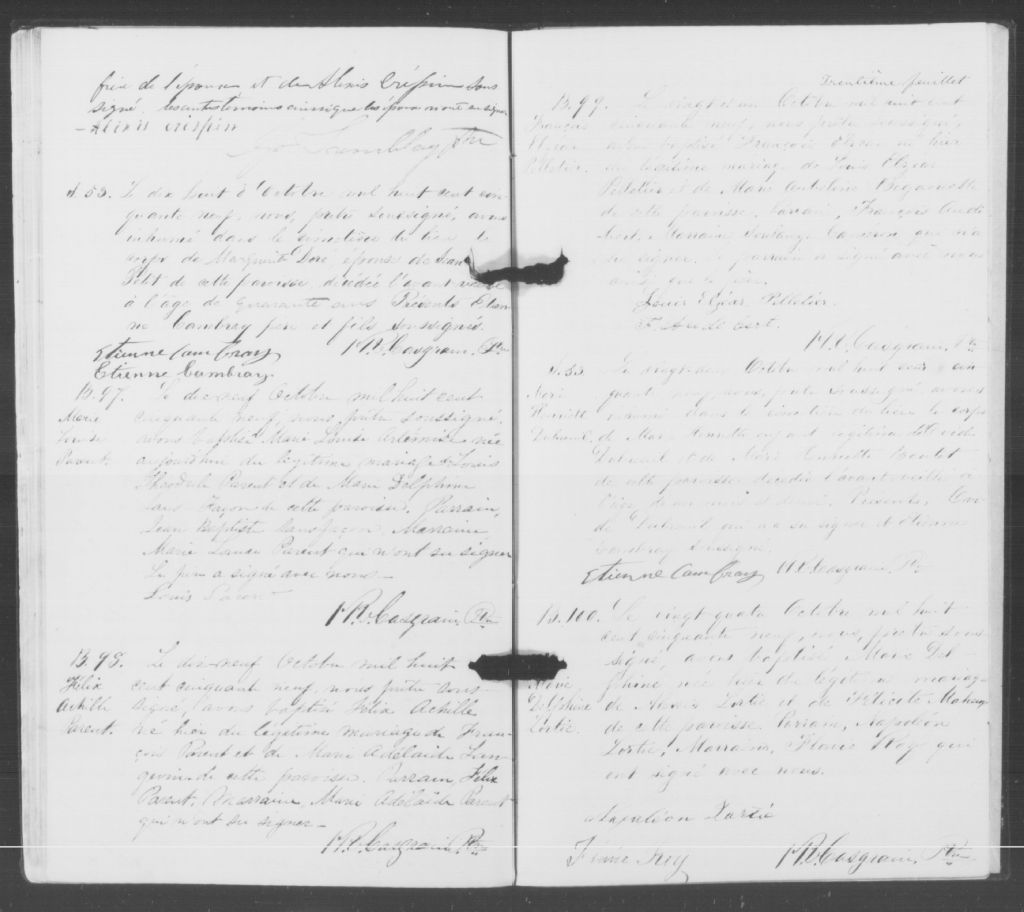 frère de l'épouse et de Alexis Crépin sous
signé les autres témoins ainsi que les époux n'ont su signer
Alexis crespin
Ptre
S. 53. Le dix huit d'Octobre mil huit cent cin
quante neuf, nous, prêtre soussigné, avons
inhumé dans le cimetière du lieu le
corps de Marguerite Doré épouse de Jean
Petit de cette paroisse, décédée l'avant veille
à l'âge de quarante ans Présents Etien
ne Cambray père et fils soussignés.
Etienne Cambray H. R. Casgrain, Ptre
Etienne Cambray.
B. 97. Le dix-neuf Octobre mil huit cent
Marie cinquante neuf, nous, prêtre soussigné,
Louise avons baptisé Marie Louise née
Parent. aujourd'hui du légitime mariage de Louis
Théodule Parent et de Marie Delphine
Sans façon de cette paroisse. Parrain,
Jean Baptiste Sansfaçon, Marraine
Marie Louise Parent qui n'ont su signer
Le père a signé avec nous
Louis Parent
H. R. Casgrain, Ptre
B. 98. Le dix-neuf Octobre mil huit
Félix cent cinquante neuf, nous prêtre sous
Achille signé, avons baptisé Félix Achille
Parent. né hier du légitime mariage de Fran
çois Parent et de Marie Adelaide Lan
gevin de cette paroisse. Parrain, Félix
Parent, Marraine, Marie Adélaïde Parent
qui n'ont su signer
H. R. Casgrain, Ptre
Trentième feuillet
B. 99. Le vingt et un Octobre mil huit cent
François cinquante neuf, nous, prêtre soussigné,
Elzear avons baptisé François Elzear né hier
Pelletier. du légitime mariage de Louis Elzéar
Pelletier et de Marie
de cette paroisse. Parrain, François Aude
bert, Marraine qui n'a
su signer. Le parrain a signé avec nous
ainsi que le père.
Louis Elzéar Pelletier
F. Audebert.
H. R. Casgrain, Ptre
S. 53 Le vingt deux Octobre mil huit cent cin
Marie quante neuf, nous, prêtre soussigné avons
Henriette inhumé dans le cimetière du lieu le corps
Dubreuil. de Marie Henriette enfant légitime
Dubreuil et de Marie Henriette Boutet
de cette paroisse décédée l'avant veille à
l'âge de et demi. Présents,
Dubreuil qui n'a su signer et Etienne
Cambray soussigné.
Etienne Cambray H. R. Casgrain, Ptre
B. 100. Le vingt quatre Octobre mil huit
cent cinquante neuf, nous, prêtre sous
signé, avons baptisé Marie Del
Marie phine née hier du légitime mariage
Delphine de Lortie et de Félicité
Lortie. de cette paroisse Parrain, Napoléon
Lortie, Marraine, Roy qui
ont signé avec nous.
Napoléon Lortie
Roy H. R. Casgrain, Ptre